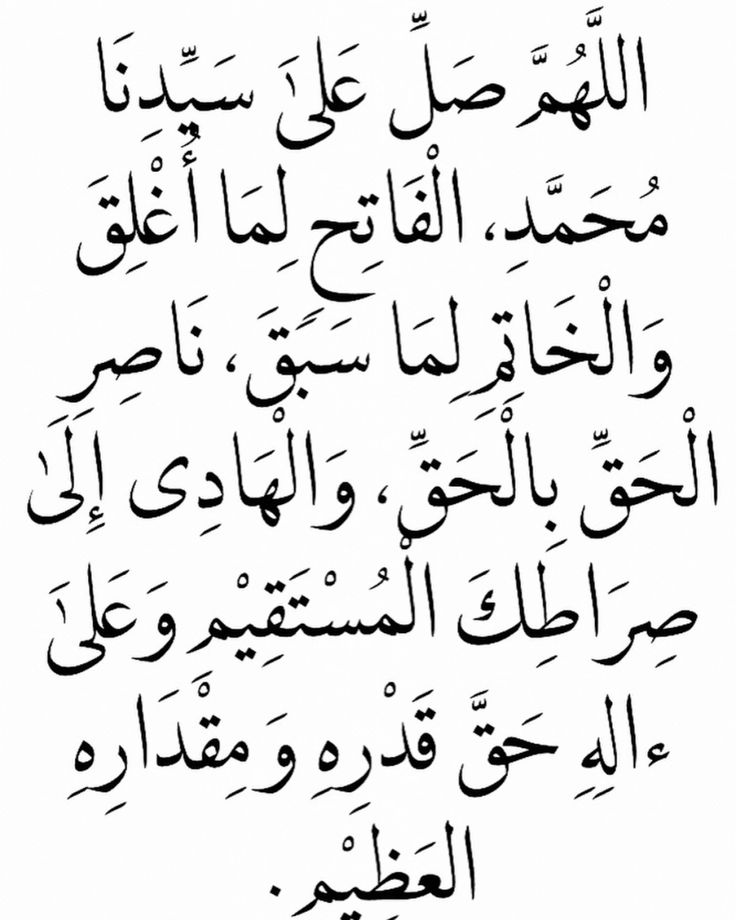 اللَّهُمَّ صَلِّ عَلَىٰ سَيِّدِنَا
مُحَمَّدِ، الْفَاتِحِ لِمَا أُغْلِقَ
وَالْخَاتِمِ لِمَا سَبَقَ، نَاصِرِ
الْحَقِّ بِالْحَقِّ، وَالْهَادِى إِلَىٰ
صِرَاطِكَ الْمُسْتَقِيْمِ وَعَلَىٰ
ءالِهِ حَقَّ قَدْرِهِ وَمِقْدَارِهِ
العَظِيْمِ.